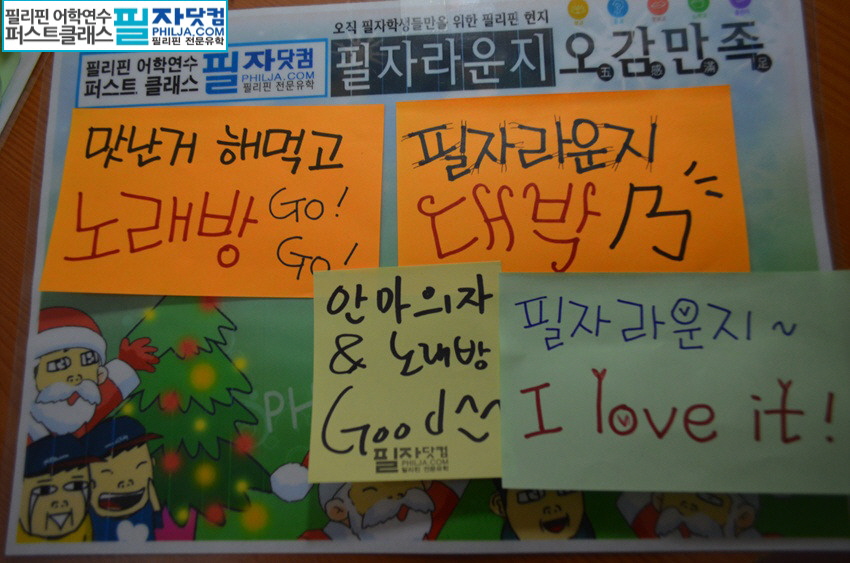 필리핀 어학연수
퍼스트클래스
필자닷컴
PHILJA.COM
필리핀 전문유학
오직 필자학생들만을 위한 필리핀 현지
필리핀 어학연수
퍼스트 클래스
필자닷컴
PHILJA.COM
필리핀 전문유학
필자라운지 오감만족
五 感 滿 足
맛난거 해먹고
노래방 Go!
Go!
필자라운지
대박
안마의자
& 노래방
Good ^^
필자닷컴
PHILJA.COM
필리핀 전문유학
필자라운지~
I love it!
PH